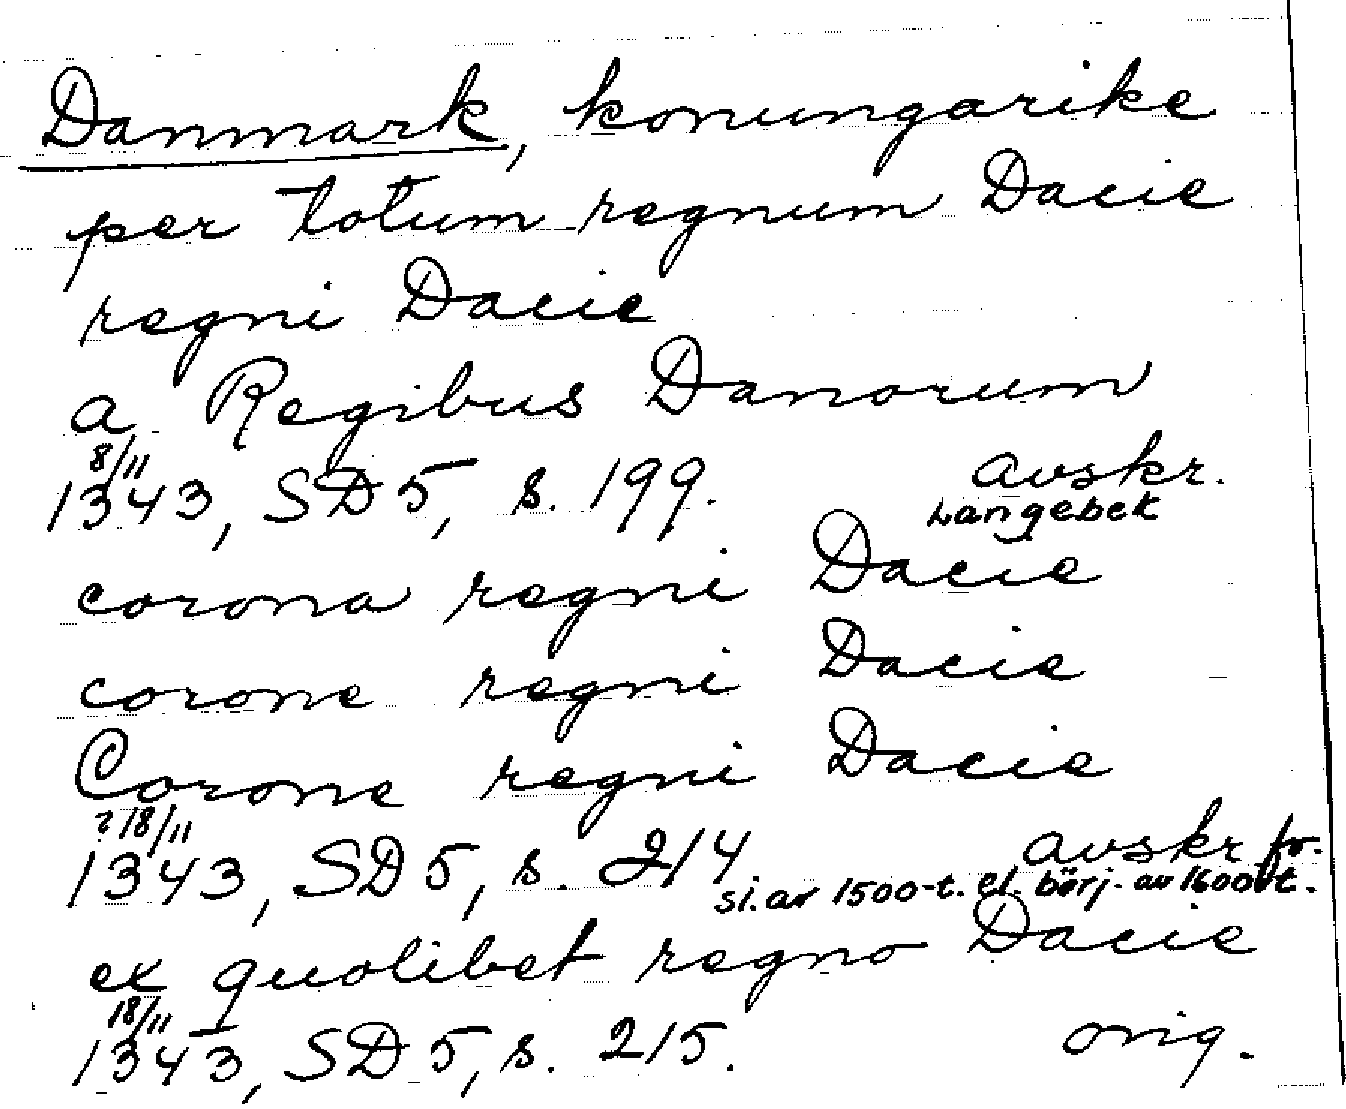 Danmark, konungarike
per totum regnum Dacie
regni Dacie
a Regibus Danorum
8/11
1343, SD 5, s. 199. avskr.
Langebek
corona regni Dacie
corone regni Dacie
Corone regni Dacie
? 18/11
1343, SD 5, s. 214 avskr fr.
sl. av 1500-t. el. börj. av 1600-t.
ex quolibet regno Dacie
18/11
1343, SD 5, s. 215. orig.